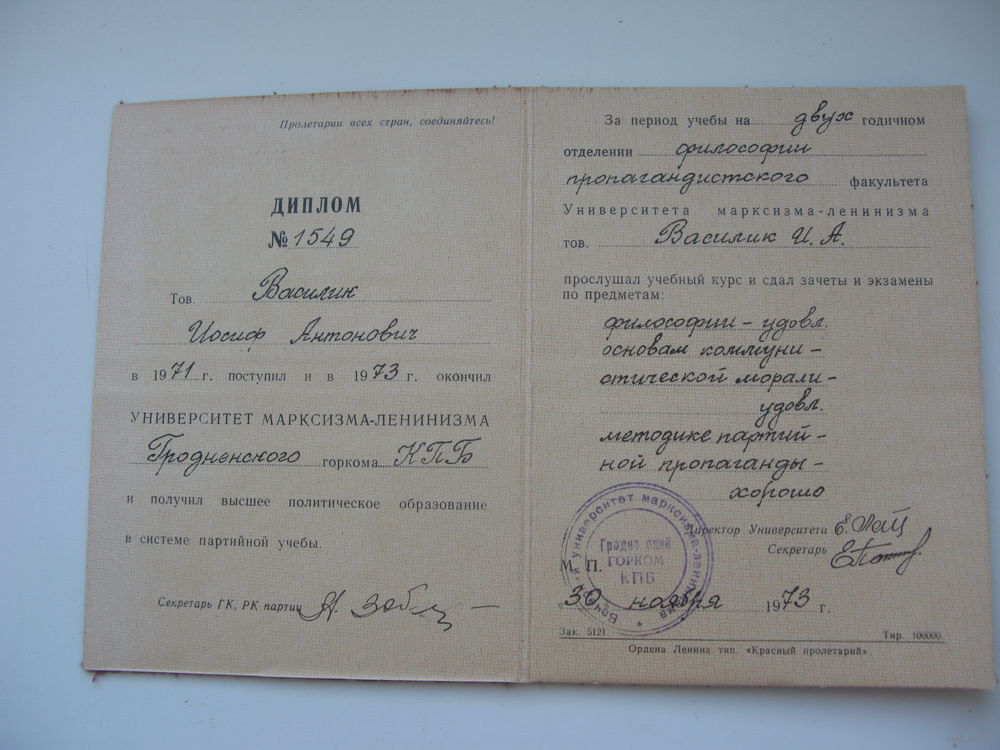 Пролетарии всех стран, соединяйтесь!
ДИПЛОМ
№ 1549
Тов. Василик
Иосиф Антонович
в 1971 г. поступил и в 1973 г. окончил
УНИВЕРСИТЕТ МАРКСИЗМА-ЛЕНИНИЗМА
Гродненского горкома КПБ
и получил высшее политическое образование
в системе партийной учебы.
Секретарь ГК, РК партии
За период учебы на двух годичном
отделении философии
пропагандистского факультета
Университета марксизма-ленинизма
тов. Василик И. А.
прослушал учебный курс и сдал зачеты и экзамены
по предметам:
философии – удовл.
основам коммуни–
стической морали–
удовл.
методике партий–
ной пропаганды–
хорошо
Директор Университета
Секретарь
М. П.
Вечерний университет марксизма-ленинизма
Гродненский
ГОРКОМ
КПБ
«30 ноября 1973 г.
Зак. 5121 Тир. 100000
Ордена Ленина тип. «Красный пролетарий»